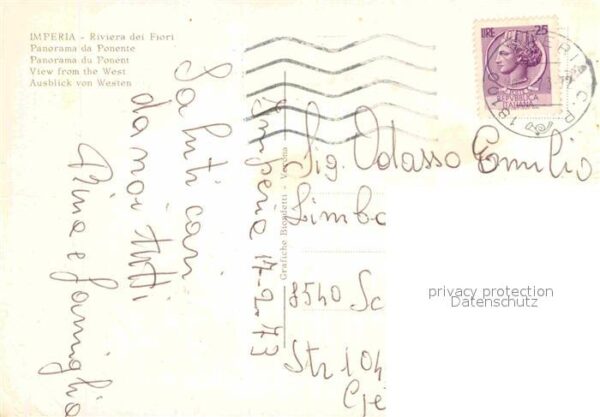 IMPERIA - Riviera dei Fiori
Panorama da Ponente
Panorama du Ponent
View from the West
Ausblick von Westen
Saluti cari
da noi tutti
Nina e famiglia
Imperia 17-2-73
Grafiche Biondetti - Verona
LIRE 25
IMPERIA C.P.
Sig. Odasso Emilio
Limbo
8540 Sc
Str 104
privacy protection
Datenschutz